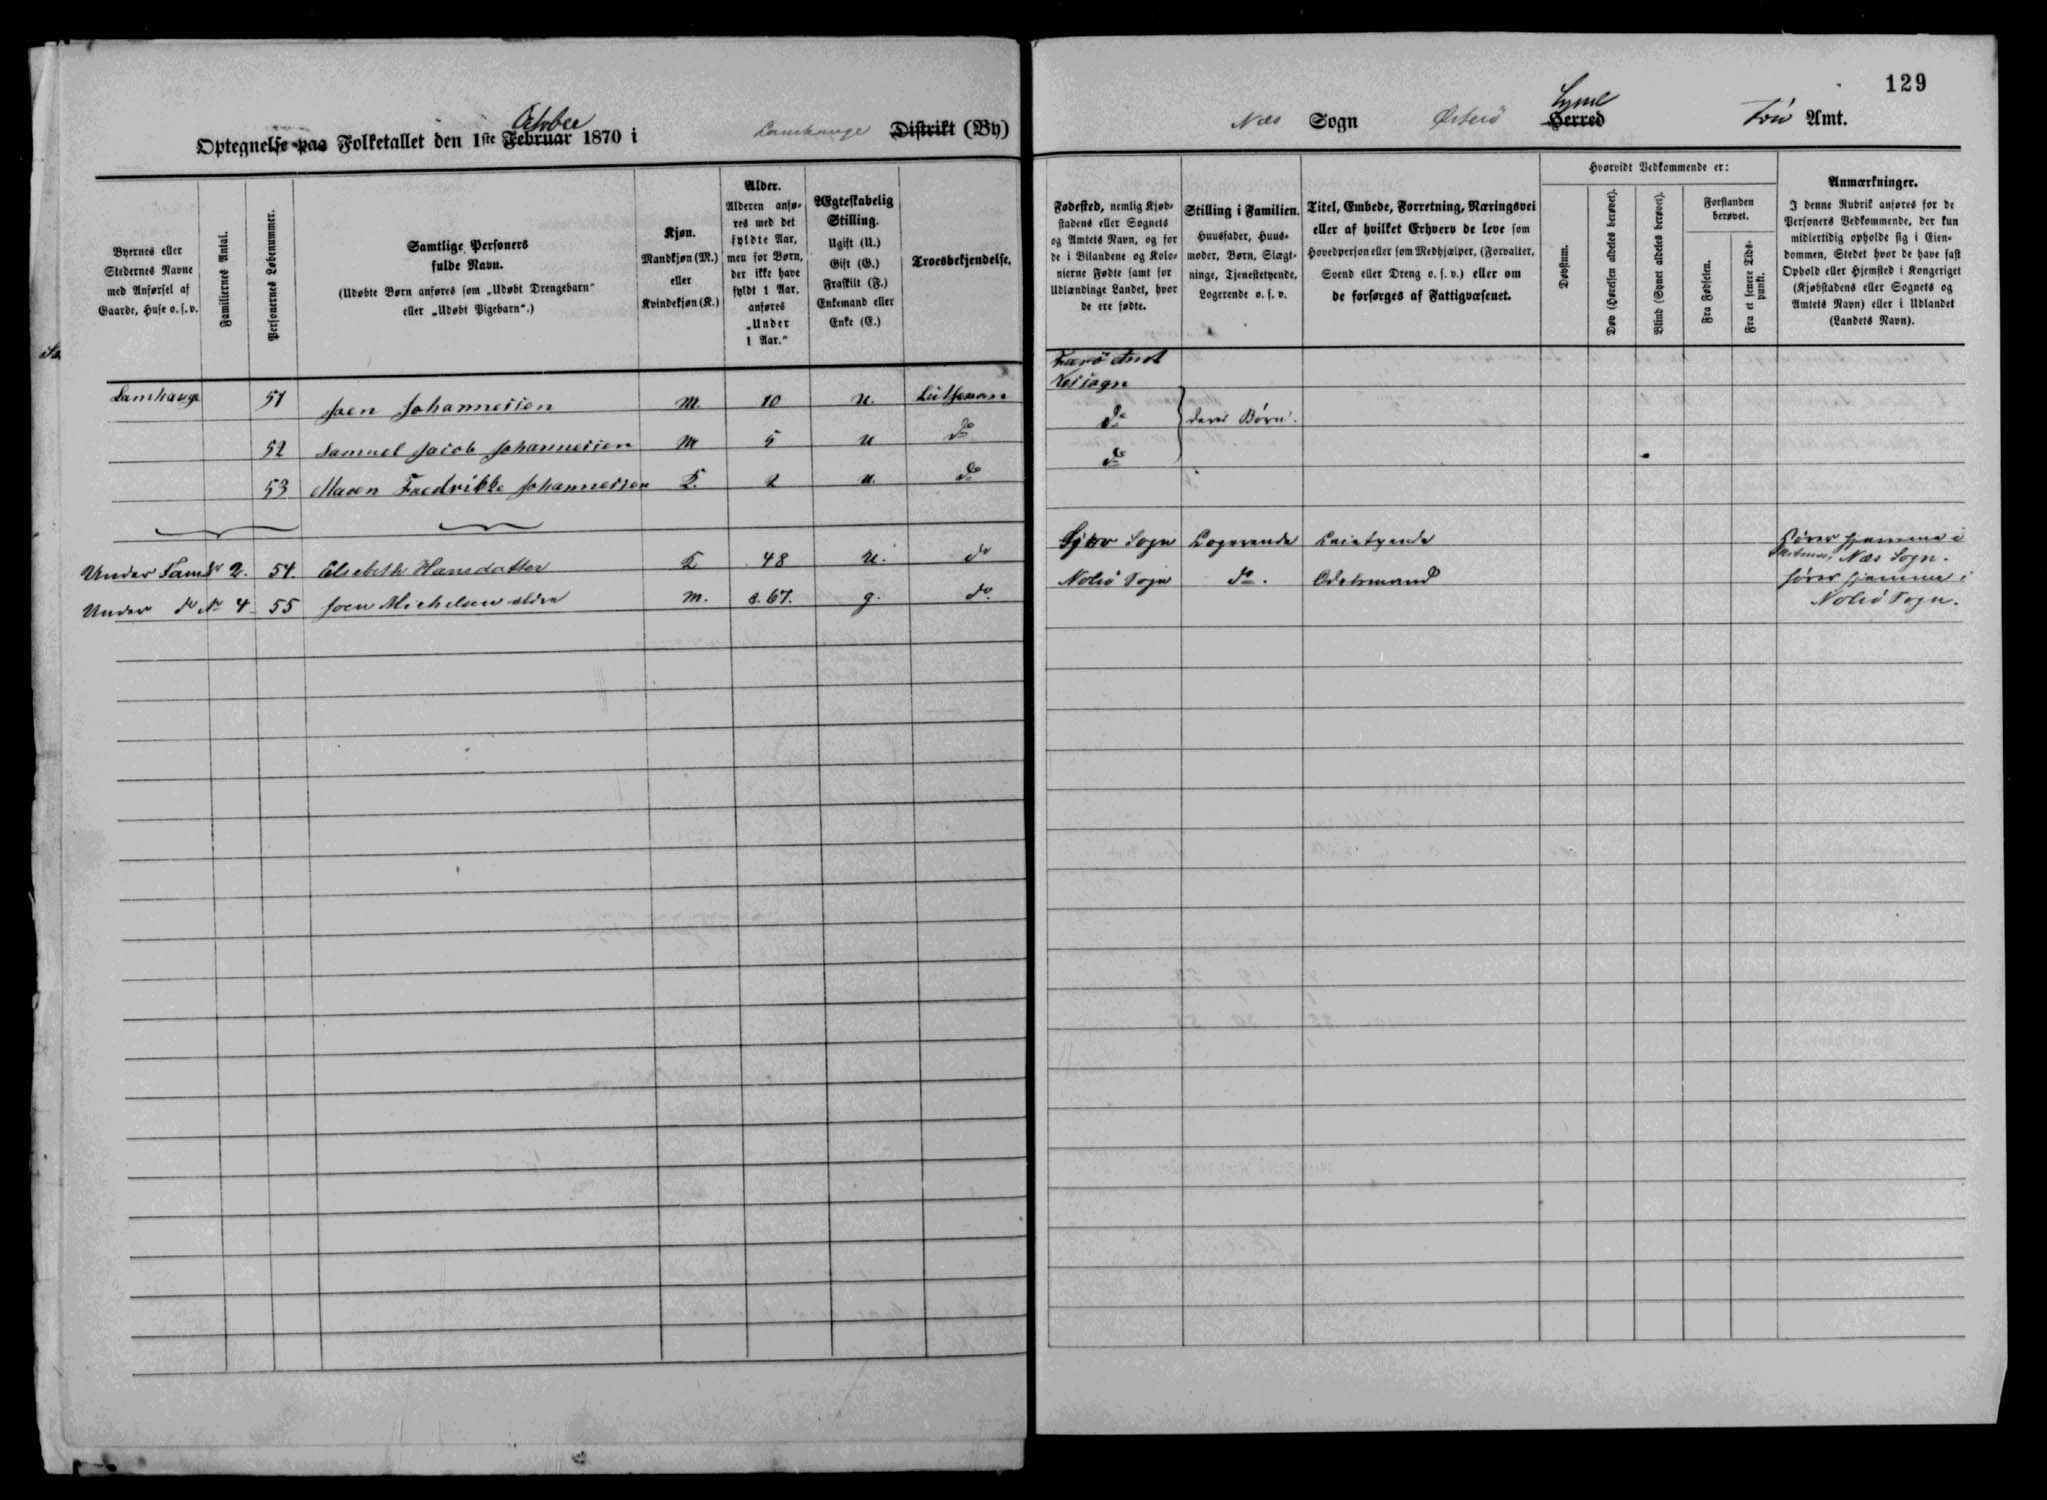 129
October
Optegnelse paa Folketallet den 1ste Februar 1870 i Lamhauge Distrikt (By)
Næs Sogn Østerö Syssel Herred Amt.
Byernes eller Stedernes Navne med Anførsel af Gaarde, Huse o. s. v.
Familiernes Antal.
Personernes Løbenummer.
Samtlige Personers fulde Navn.
(Udøbte Børn anføres som „Udøbt Drengebarn“ eller „Udøbt Pigebarn“.)
Kjøn.
Mandkjøn (M.) eller Kvindekjøn (K.)
Alder.
Alderen anføres med det fyldte Aar, men for Børn, der ikke have fyldt 1 Aar, anføres „Under 1 Aar.“
Ægteskabelig Stilling.
Ugift (U.)
Gift (G.)
Fraskilt (F.)
Enkemand eller Enke (E.)
Troesbekjendelse.
Fødested, nemlig Kjøbstadens eller Sognets og Amtets Navn, og for de i Bilandene og Kolonierne Fødte samt for Udlændinge Landet, hvor de ere fødte.
Stilling i Familien.
Huusfader, Huusmoder, Børn, Slægtninge, Tjenestetyende, Logerende o. s. v.
Titel, Embede, Forretning, Næringsvei eller af hvilket Erhverv de leve som Hovedperson eller som Medhjælper, (Forvalter, Svend eller Dreng o. s. v.) eller om de forsørges af Fattigvæsenet.
Hvorvidt Vedkommende er:
Døvstum.
Døv (Hørelsen aldeles berøvet).
Blind (Synet aldeles berøvet).
Forstanden berøvet.
Fra Fødselen.
Fra et senere Tidspunkt.
Anmærkninger.
I denne Rubrik anføres for de Personers Vedkommende, der kun midlertidig opholde sig i Eiendommen, Stedet hvor de have fast Ophold eller Hjemsted i Kongeriget (Kjøbstadens eller Sognets og Amtets Navn) eller i Udlandet (Landets Navn).
Færö Amt
Lamhauge 51 Joen Johannessen M. 10 U. Luthersn Nessogn
52 Samuel Jacob Johannessen M 5 U do do deres Børn.
53 Maren Fredrikke Johannessen K. 2 U. do do
Under Fam. No 2. 54. Elsebeth Hansdatter K 48 U. do Sogn Logerende Leietyende hører hjemme i Næs Sogn.
Under do No 4 55 Joen Michelsen ældre M. 67. g. do. Nolsö Sogn do. Odelsmand hører hjemme i
Nolsö Sogn.